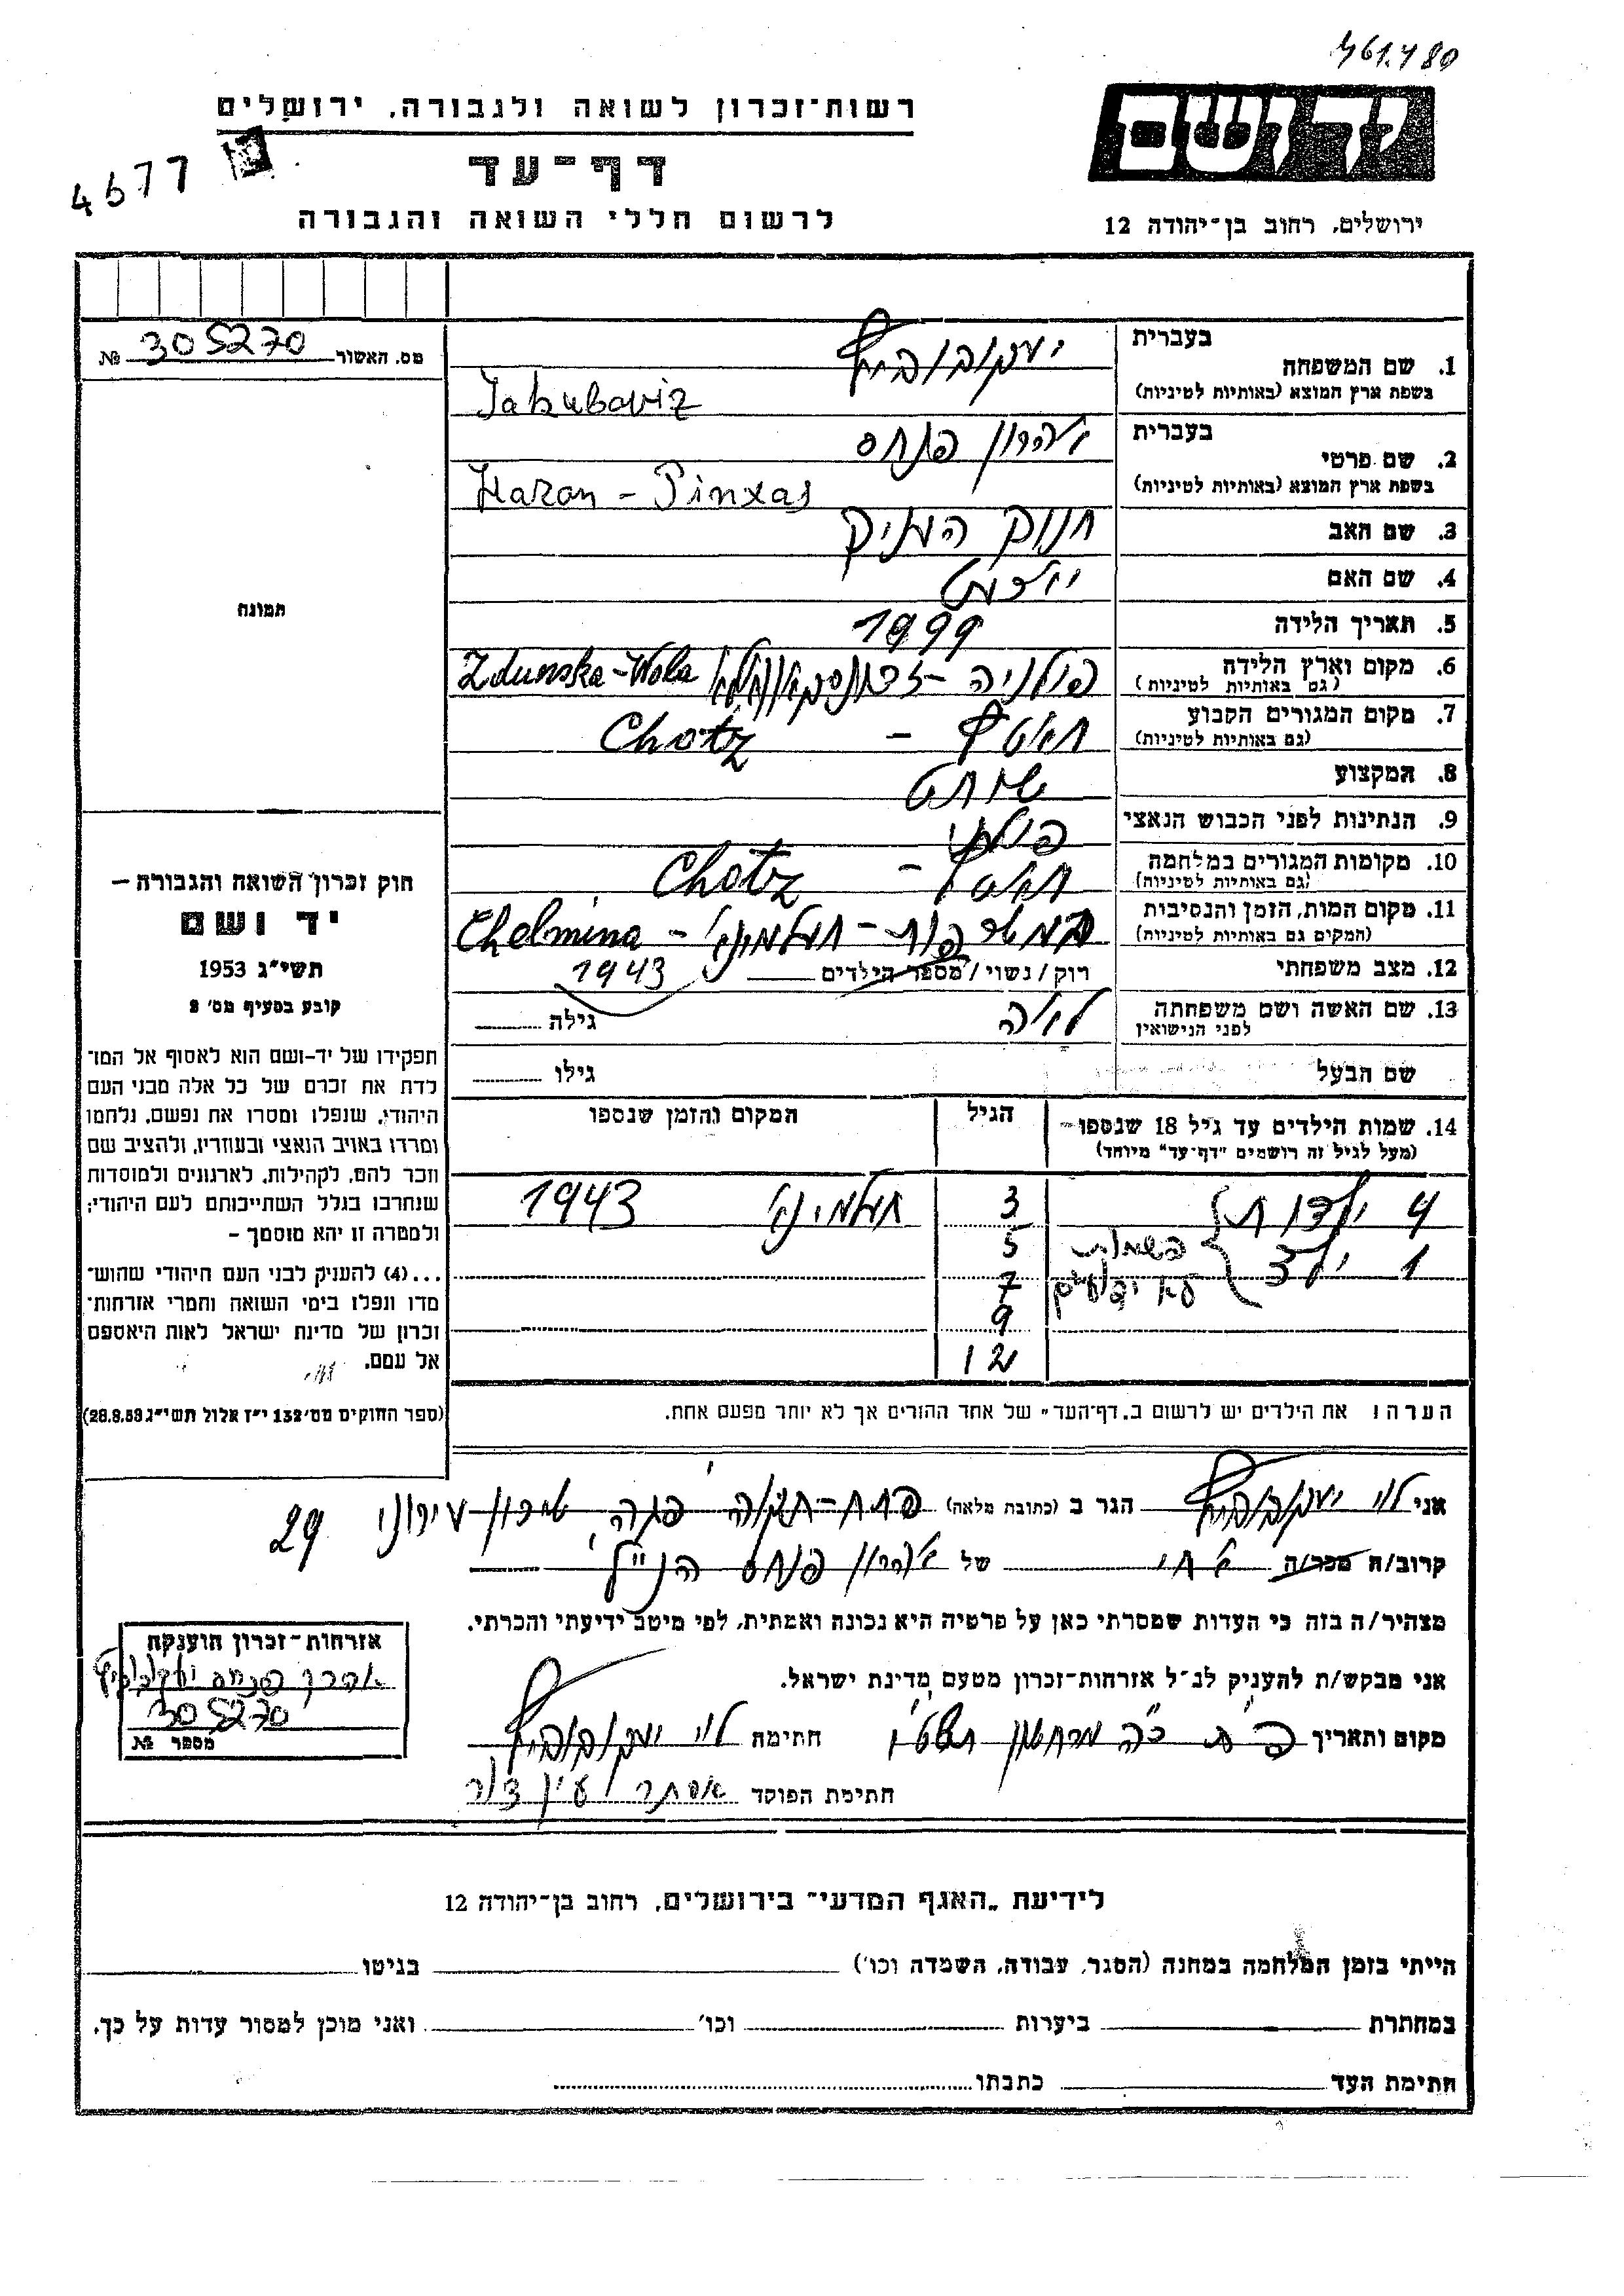 461.480
רשות-זכרון לשואה ולגבורה, ירושלים
יד ושם
דף-עד
4677
לרשום חללי השואה והגבורה
ירושלים, רחוב בן-יהודה 12
מס. האשור 305270 №
בעברית
1. שם המשפחה יעקובוביץ
בשפת ארץ המוצא (באותיות לטיניות) Jakuboviz
בעברית
2. שם פרטי אהרון פנחס
בשפת ארץ המוצא (באותיות לטיניות) Haron - Pinxas
3. שם האב חנוך העניק
4. שם האם
5. תאריך הלידה 1899
6. מקום וארץ הלידה פולניה - זדונסקה וולה Zdunska-Wola
(גם באותיות לטיניות)
7. מקום המגורים הקבוע - Chotz
(גם באותיות לטיניות)
8. המקצוע שוחט
9. הנתינות לפני הכבוש הנאצי פולני
10. מקומות המגורים במלחמה - Chotz
(גם באותיות לטיניות)
11. מקום המות, הזמן והנסיבות - חלמינה - Chelmina
(המקום גם באותיות לטיניות)
12. מצב משפחתי רוק/נשוי/מספר הילדים 1943
13. שם האשה ושם משפחתה לאה גילה
לפני הנישואין
שם הבעל גילו
14. שמות הילדים עד גיל 18 שנספו- הגיל המקום והזמן שנספו
(מעל לגיל זה רושמים "דף-עד" מיוחד)
4 ילדות 3 חלמינה 1943
1 ילד השמות 5
לא ידועים 7
9
12
הערה: את הילדים יש לרשום ב,דף-העד" של אחד ההורים אך לא יותר מפעם אחת.
תמונה
חוק זכרון השואה והגבורה –
יד ושם
תשי"ג 1953
קובע בסעיף מס' 2
תפקידו של יד-ושם הוא לאסוף אל המו־
לדת את זכרם של כל אלה מבני העם
היהודי, שנפלו ומסרו את נפשם, נלחמו
ומרדו באויב הנאצי ובעוזריו, ולהציב שם
וזכר להם, לקהילות, לארגונים ולמוסדות
שנחרבו בגלל השתייכותם לעם היהודי;
ולמטרה זו יהא מוסמך –
...(4) להעניק לבני העם היהודי שהוש־
מדו ונפלו בימי השואה והמרי אזרחות־
זכרון של מדינת ישראל לאות היאספם
אל עמם.
(ספר החוקים מס' 132 י"ז אלול תשי"ג 28.8.53)
אני לוי יעקובוביץ הגר ב (כתובת מלאה) פתח-תקוה שכון עירוני 29
קרוב/ה מכר/ה אחי של אהרון פנחס הנ"ל
מצהיר/ה בזה כי העדות שמסרתי כאן על פרטיה היא נכונה ואמתית, לפי מיטב ידיעתי והכרתי.
אני מבקש/ת להעניק לנ"ל אזרחות-זכרון מטעם מדינת ישראל.
מקום ותאריך פ"ת כ"ה מרחשון תשט"ו חתימה לוי יעקובוביץ
חתימת הפוקד אסתר עין דור
אזרחות-זכרון הוענקה
אהרן פנחס יעקובוביץ
305270
מספר №
לידיעת „האגף המדעי" בירושלים, רחוב בן-יהודה 12
הייתי בזמן המלחמה במחנה (הסגר, עבודה, השמדה וכו') בגיטו
במחתרת ביערות וכו' ואני מוכן למסור עדות על כך.
חתימת העד כתבתו